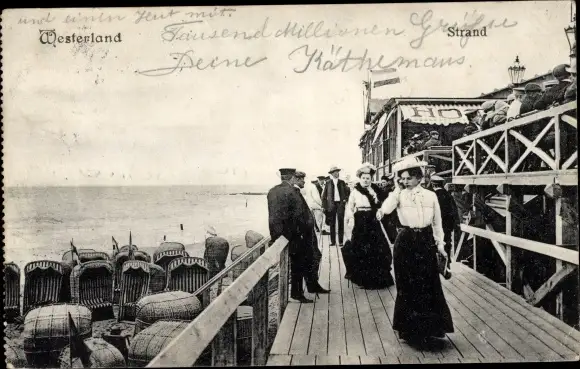 und einen Hut mit.
Westerland
Strand
Tausend Millionen Grüße
Deine Käthemaus
HO